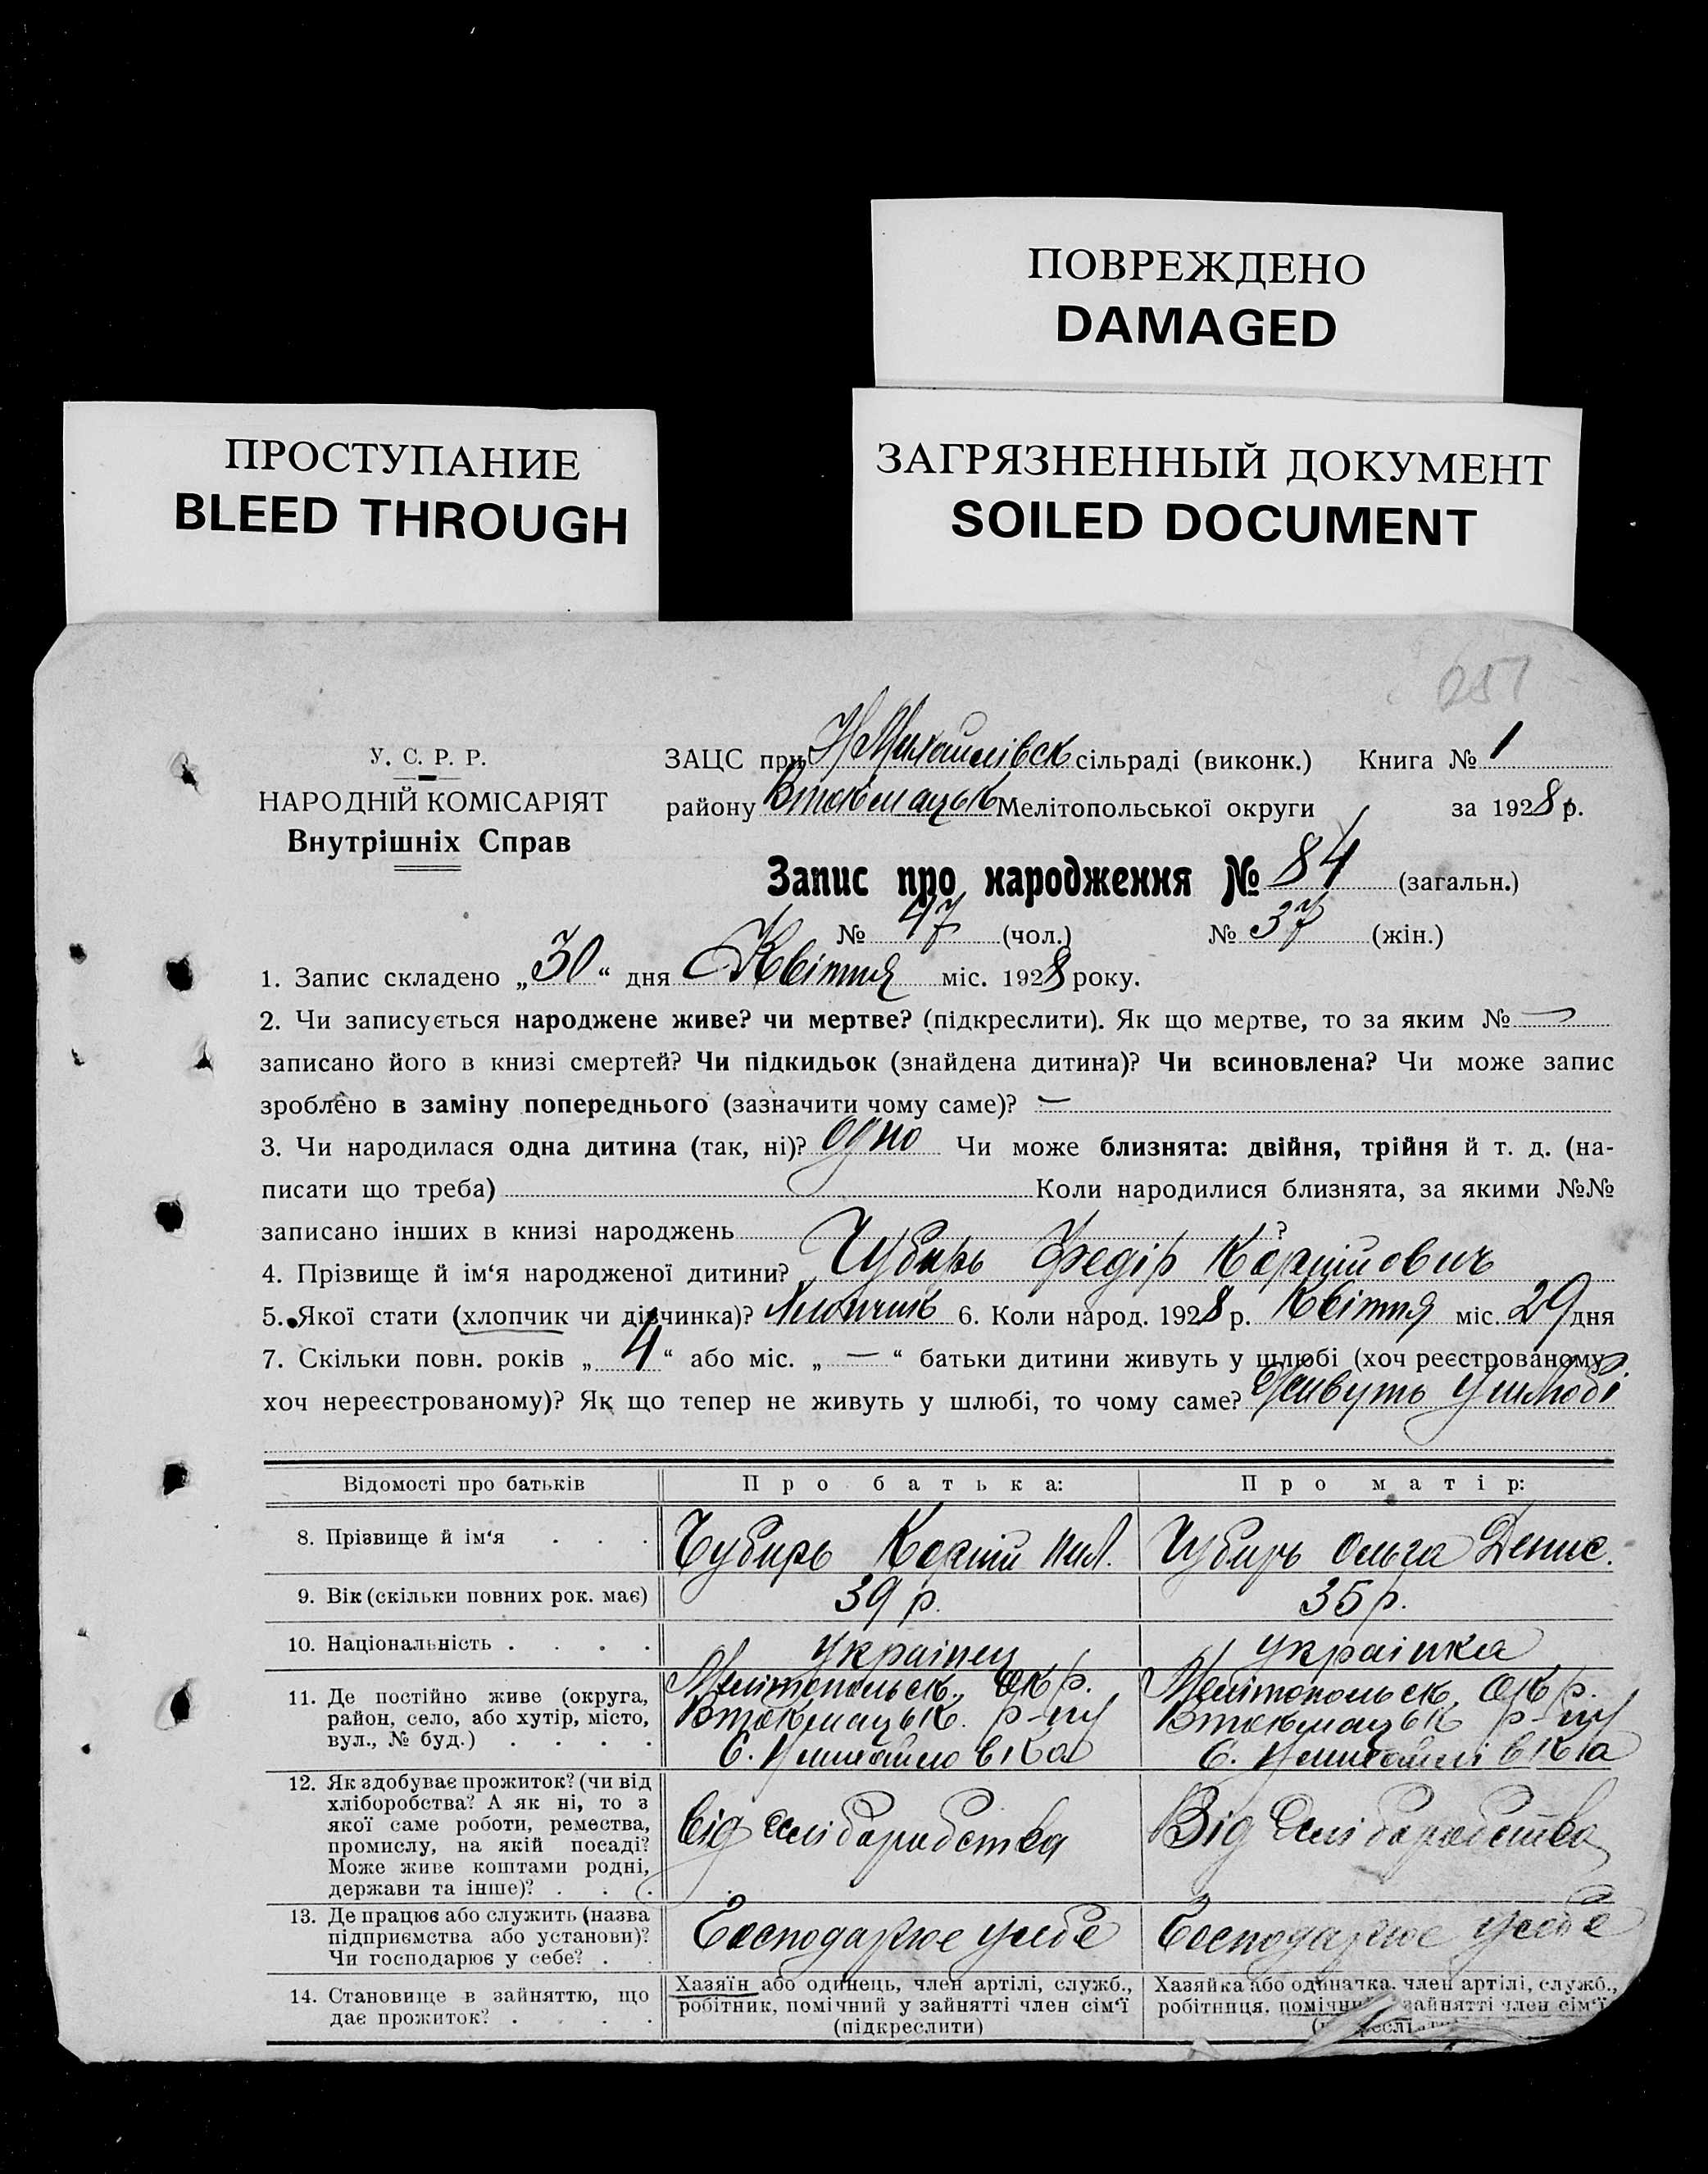 ПОВРЕЖДЕНО
DAMAGED
ПРОСТУПАНИЕ
BLEED THROUGH
ЗАГРЯЗНЕННЫЙ ДОКУМЕНТ
SOILED DOCUMENT
У. С. Р. Р.
НАРОДНІЙ КОМІСАРІЯТ
Внутрішніх Справ
ЗАЦС при Н Михайлівск сільраді (виконк.) Книга № 1
району Втокмацьк Мелітопольської округи за 1928 р.
Запис про народження № 84 (загальн.)
№ 47 (чол.) № 37 (жін.)
1. Запис складено „30“ дня Квітня міс. 1928 року.
2. Чи записується народжене живе? чи мертве? (підкреслити). Як що мертве, то за яким № —
записано його в книзі смертей? Чи підкидьок (знайдена дитина)? Чи всиновлена? Чи може запис
зроблено в заміну попереднього (зазначити чому саме)? —
3. Чи народилася одна дитина (так, ні)? одно Чи може близнята: двійня, трійня й т. д. (на-
писати що треба) Коли народилися близнята, за якими №№
записано інших в книзі народжень ?
4. Прізвище й ім‘я народженої дитини? Чубирь Федір Корнійович
5. Якої стати (хлопчик чи дівчинка)? Хлопчик 6. Коли народ. 1928 р. Квітня міс. 29 дня
7. Скільки повн. років „4“ або міс. „—“ батьки дитини живуть у шлюбі (хоч реєстрованому,
хоч нереєстрованому)? Як що тепер не живуть у шлюбі, то чому саме? Живуть у шлюбі
Відомості про батьків Про батька: Про матір:
8. Прізвище й ім‘я . . . Чубирь Корній Чубирь Ольга Денис.
9. Вік (скільки повних рок. має) 39 р. 35 р.
10. Національність . . . . Українец українка
11. Де постійно живе (округа, район, село, або хутір, місто, вул., № буд.) . . . .
Мелітопольск. Окр.
Втокмацьк. р-ну
Мелітопольск. Окр.
Втокмацьк р-ну
12. Як здобуває прожиток? (чи від хліборобства? А як ні, то з якої саме роботи, ремества, промислу, на якій посаді? Може живе коштами родні, держави та інше)? . . .
від хліборобства
Від хліборобства
13. Де працює або служить (назва підприємства або установи)? Чи господарює у себе? . .
Господарює у себе
Господарює у себе
14. Становище в зайняттю, що дає прожиток? . . . .
Хазяїн або одинець, член артілі, служб.,
робітник, помічний у зайнятті член сім‘ї
(підкреслити)
Хазяйка або одиначка, член артілі, служб.,
робітниця, зайнятті член сім‘ї